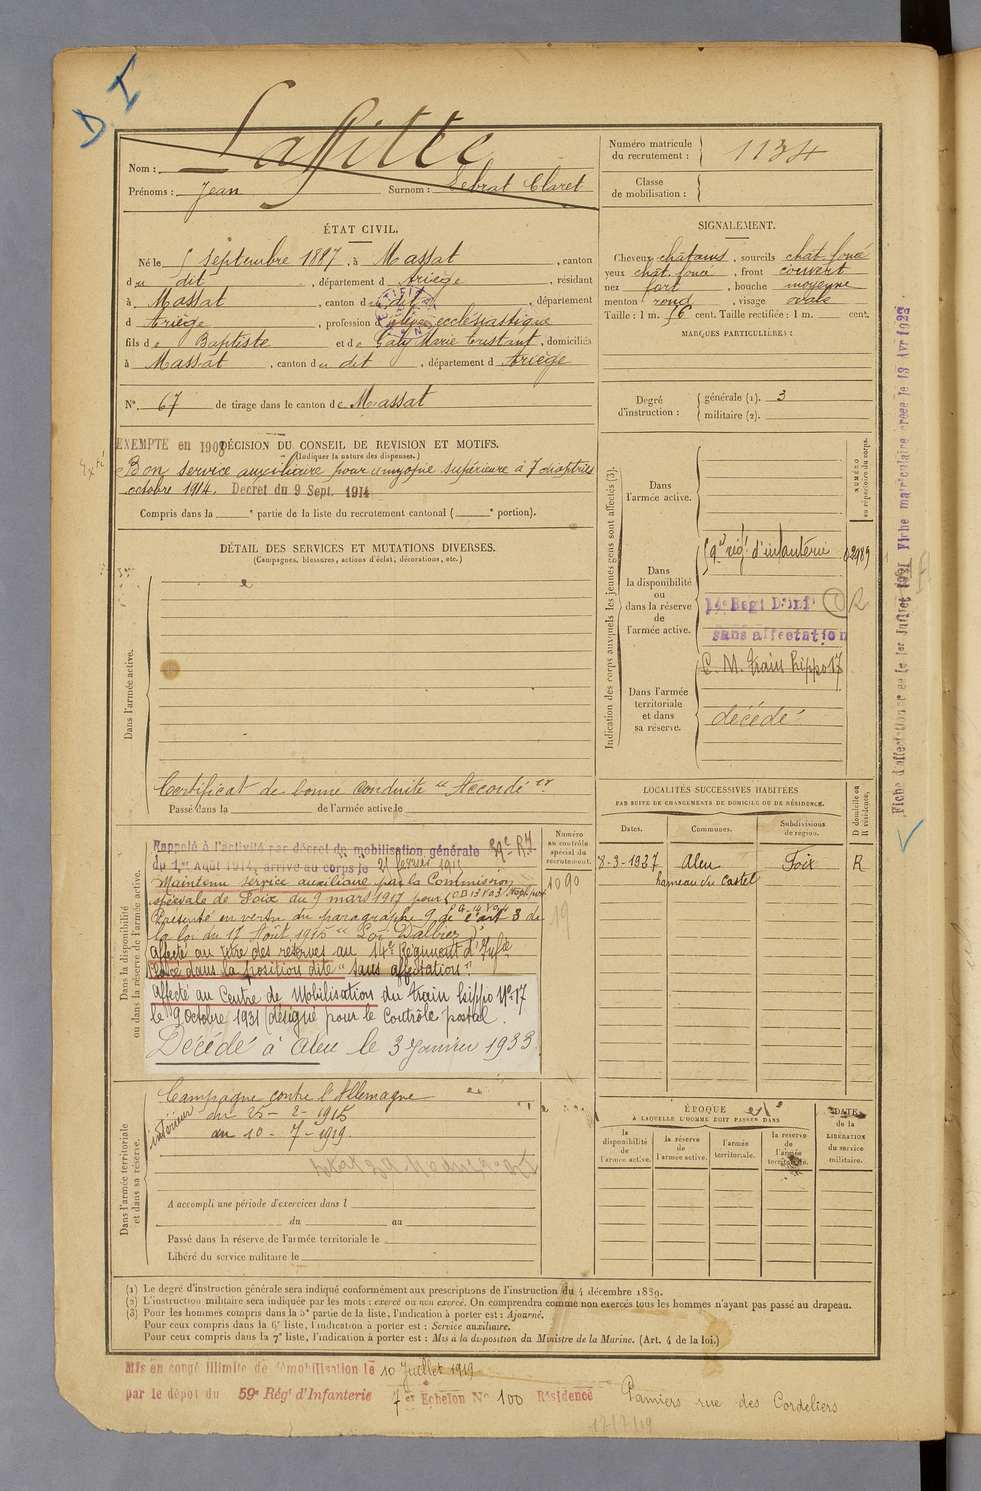 D I
Nom : Laffitte
Prénoms : Jean Surnom : Lebrat Claret
Numéro matricule du recrutement : 1134
Classe de mobilisation :
ÉTAT CIVIL.
Né le 5 septembre 1887, à Massat, canton
du dit, département d Ariège, résidant
à Massat, canton du dit, département
d Ariège, profession d élève ecclésiastique
fils de Baptiste et de Galy Marie Tristant, domiciliés
à Massat, canton du dit, département d Ariège
N° 67 de tirage dans le canton de Massat
SIGNALEMENT.
Cheveux chatains, sourcils chat foncé
yeux chat foncé, front couvert
nez fort, bouche moyenne
menton rond, visage ovale
Taille : 1 m. 56 cent. Taille rectifiée : 1 m. cent.
MARQUES PARTICULIÈRES :
Degré d'instruction : générale (1). 3
militaire (2).
EXEMPTE en 1908 DÉCISION DU CONSEIL DE REVISION ET MOTIFS.
(Indiquer la nature des dispenses.)
Bon service auxiliaire pour myopie supérieure à 7 dioptries
octobre 1914. Decret du 9 Sept. 1914
Compris dans la e partie de la liste du recrutement cantonal ( e portion).
DÉTAIL DES SERVICES ET MUTATIONS DIVERSES.
(Campagnes, blessures, actions d'éclat, décorations, etc.)
Dans l'armée active.
Certificat de bonne conduite "Accordé"
Passé dans la de l'armée active le
Indication des corps auxquels les jeunes gens sont affectés (3).
NUMÉRO au répertoire du corps.
Dans l'armée active.
Dans la disponibilité ou dans la réserve de l'armée active.
59e rég! d'infanterie 02989
14e Regt D'Inf C R
sans affectation
Dans l'armée territoriale et dans sa réserve.
C. M. train hippo 17
décédé
LOCALITÉS SUCCESSIVES HABITÉES
PAR SUITE DE CHANGEMENTS DE DOMICILE OU DE RÉSIDENCE.
Dates. Communes. Subdivisions de région. D domicile ou R résidence.
8-3-1927 Aleu Foix R
hameau du Castet
Dans la disponibilité ou dans la réserve de l'armée active.
Numéro au contrôle spécial du recrutement.
1090
19
Rappelé à l'activité par décret de mobilisation générale 59e RI
du 1er Août 1914, arrivé au corps le 21 février 1915
Maintenu service auxiliaire par la Commission
spéciale de Foix du 9 mars 1917 pour
Présenté en vertu du paragraphe 9 de l'art 3 de
la loi du 17 Août 1915 "Loi Dalbiez"
Affecté au titre des réserves au 14e Régiment d'Infie
Placé dans la position dite "sans affectation"
Affecté au Centre de Mobilisation du train hippo N° 17
le 9 octobre 1931 (désigné pour le Contrôle postal.
Décédé à Aleu le 3 Janvier 1933
Dans l'armée territoriale et dans sa réserve.
Campagne contre l'Allemagne
intérieur du 25 - 2 - 1915
au 10 - 7 - 1919.
A accompli une période d'exercices dans l
du au
Passé dans la réserve de l'armée territoriale le
Libéré du service militaire le
ÉPOQUE
À LAQUELLE L'HOMME DOIT PASSER DANS
la disponibilité de l'armée active. la réserve de l'armée active. l'armée territoriale. la reserve de l'armée territoriale.
DATE de la LIBÉRATION du service militaire.
(1) Le degré d'instruction générale sera indiqué conformément aux prescriptions de l'instruction du 4 décembre 1889.
(2) L'instruction militaire sera indiquée par les mots : exercé ou non exercé. On comprendra comme non exercés tous les hommes n'ayant pas passé au drapeau.
(3) Pour les hommes compris dans la 5e partie de la liste, l'indication à porter est : Ajourné.
Pour ceux compris dans la 6e liste, l'indication à porter est : Service auxiliaire.
Pour ceux compris dans la 7e liste, l'indication à porter est : Mis à la disposition du Ministre de la Marine. (Art. 4 de la loi.)
Mis en congé illimité de démobilisation le 10 Juillet 1919
par le dépôt du 59e Rég! d'Infanterie 7 et Echelon N° 100 Résidence Pamiers rue des Cordeliers
17/7/19
Fiche d'affectation créée le 1er Juillet 1921 Fiche matriculaire créée le 13 Avr 1922